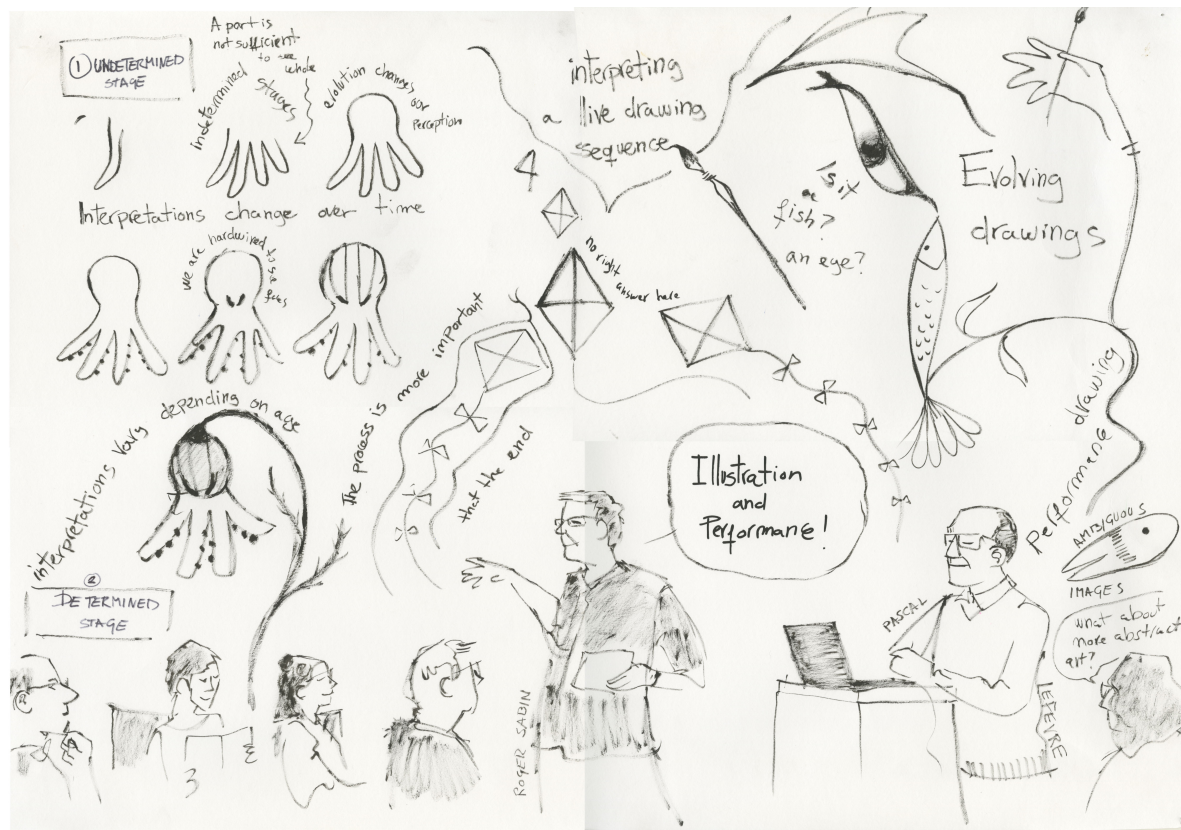 ① UNDETERMINED
STAGE
A part is
not sufficient
to see
whole
indetermined
stages
evolution changes our
perception
Interpretations change over time
we are hardwired to see
faces
interpretations vary depending on age
②
DETERMINED
STAGE
The process is more important
that the end
interpreting
a live drawing
sequence
no right
answer here
Is it
a
fish?
an eye?
Evolving
drawings
Performane drawing
Illustration
and
Performane!
AMBIGUOUS
IMAGES
what about
more abstract
art?
ROGER SABIN
PASCAL
LEFEVRE